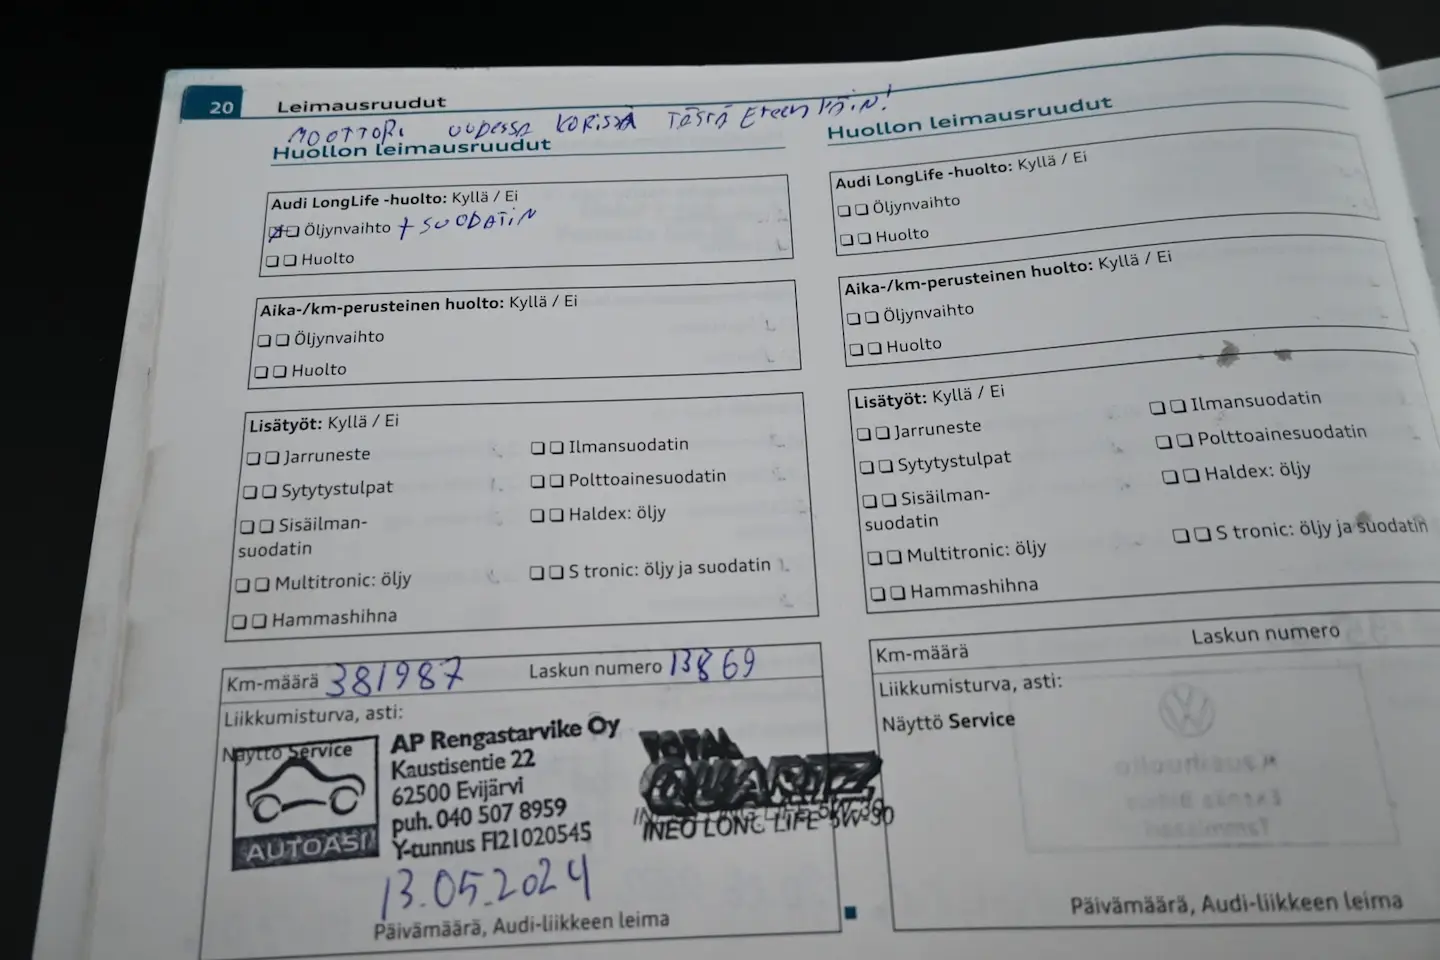 20 Leimausruudut
MOOTTORI UUDESSA KORISSA TÄSTÄ ETEENPÄIN!
Huollon leimausruudut
Audi LongLife -huolto: Kyllä / Ei
Öljynvaihto + SUODATIN
Huolto
Aika-/km-perusteinen huolto: Kyllä / Ei
Öljynvaihto
Huolto
Lisätyöt: Kyllä / Ei
Jarruneste
Ilmansuodatin
Sytytystulpat
Polttoainesuodatin
Sisäilman-
suodatin
Haldex: öljy
Multitronic: öljy
S tronic: öljy ja suodatin
Hammashihna
Km-määrä 381987 Laskun numero 13869
Liikkumisturva, asti:
Näyttö Service
AUTOASI
AP Rengastarvike Oy
Kaustisentie 22
62500 Evijärvi
puh. 040 507 8959
Y-tunnus FI21020545
TOTAL
QUARTZ
INEO LONG LIFE 5W-30
13.05.2024
Päivämäärä, Audi-liikkeen leima
Huollon leimausruudut
Audi LongLife -huolto: Kyllä / Ei
Öljynvaihto
Huolto
Aika-/km-perusteinen huolto: Kyllä / Ei
Öljynvaihto
Huolto
Lisätyöt: Kyllä / Ei
Jarruneste
Ilmansuodatin
Sytytystulpat
Polttoainesuodatin
Sisäilman-
suodatin
Haldex: öljy
Multitronic: öljy
S tronic: öljy ja suodatin
Hammashihna
Km-määrä Laskun numero
Liikkumisturva, asti:
Näyttö Service
Päivämäärä, Audi-liikkeen leima